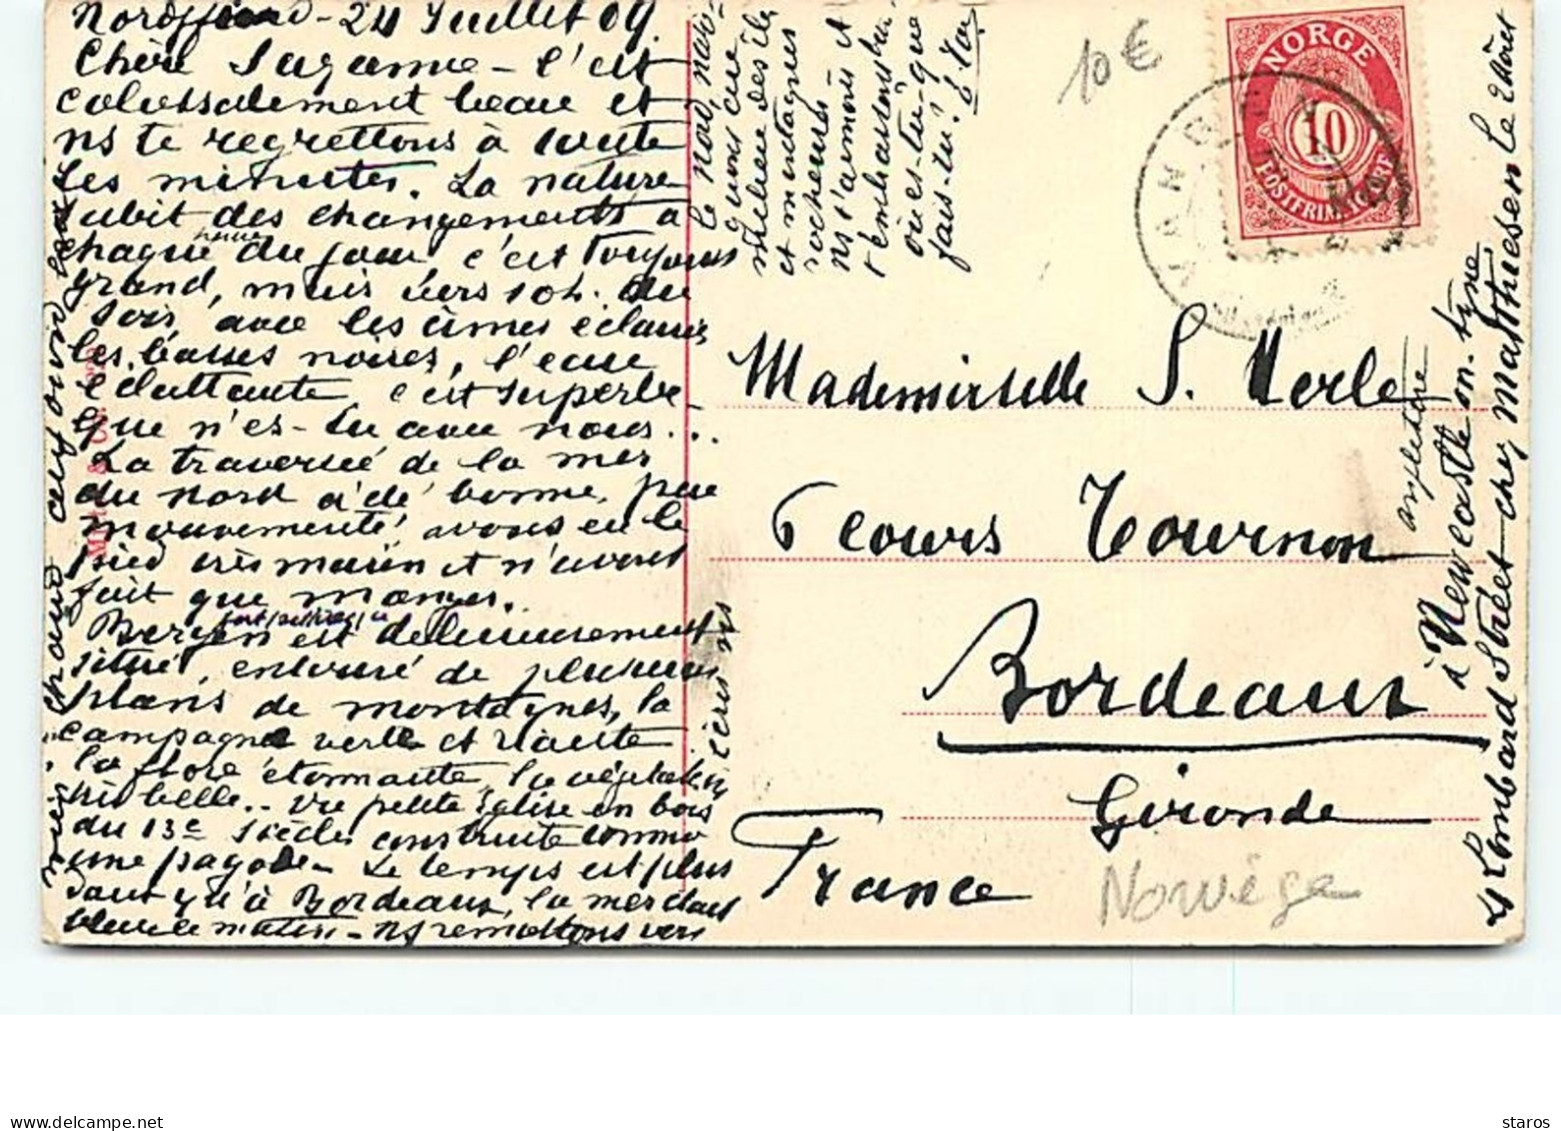 Nordfjord - 24 Juillet 09.
Chère Suzanne - c'est
colossalement beau et
ns te regrettons à toute
les minutes. La nature
subit des changements à
chaque heure du jour c'est toujours
grand, mais vers 10h. du
soir, avec les cimes éclairées
les basses noires, l'eau
éclattante c'est superbe
que n'es-tu avec nous...
La traversée de la mer
du Nord a été bonne, peu
mouvementé, avons eu le
pied très marin et n'avons
fait que manger.
Bergen est délicieusement
situé, entouré de plusieurs
plans de montagnes, la
campagne verte et riante
la flore étonnante, la végétation
très belle.. Vu petite Eglise en bois
du 13e siècle construite comme
une pagode - Le temps est plus
qu'à Bordeaux, la mer
bleue ce matin - ns remettons vers
le nord, nav-
guons au
milieu des îles
et montagnes
rochers
ns t'aimons et
t'embrassons
où es-tu - que
fais-tu?
10 €
NORGE
10
POSTFRIM
Mademoiselle S.
6 Cours Tournon
Bordeaux
Gironde
France
Norvège
écris ns
4 Lombard Street chez Matthiesen le 2 Août
à Newcastle on. tyne
angleterre
staros